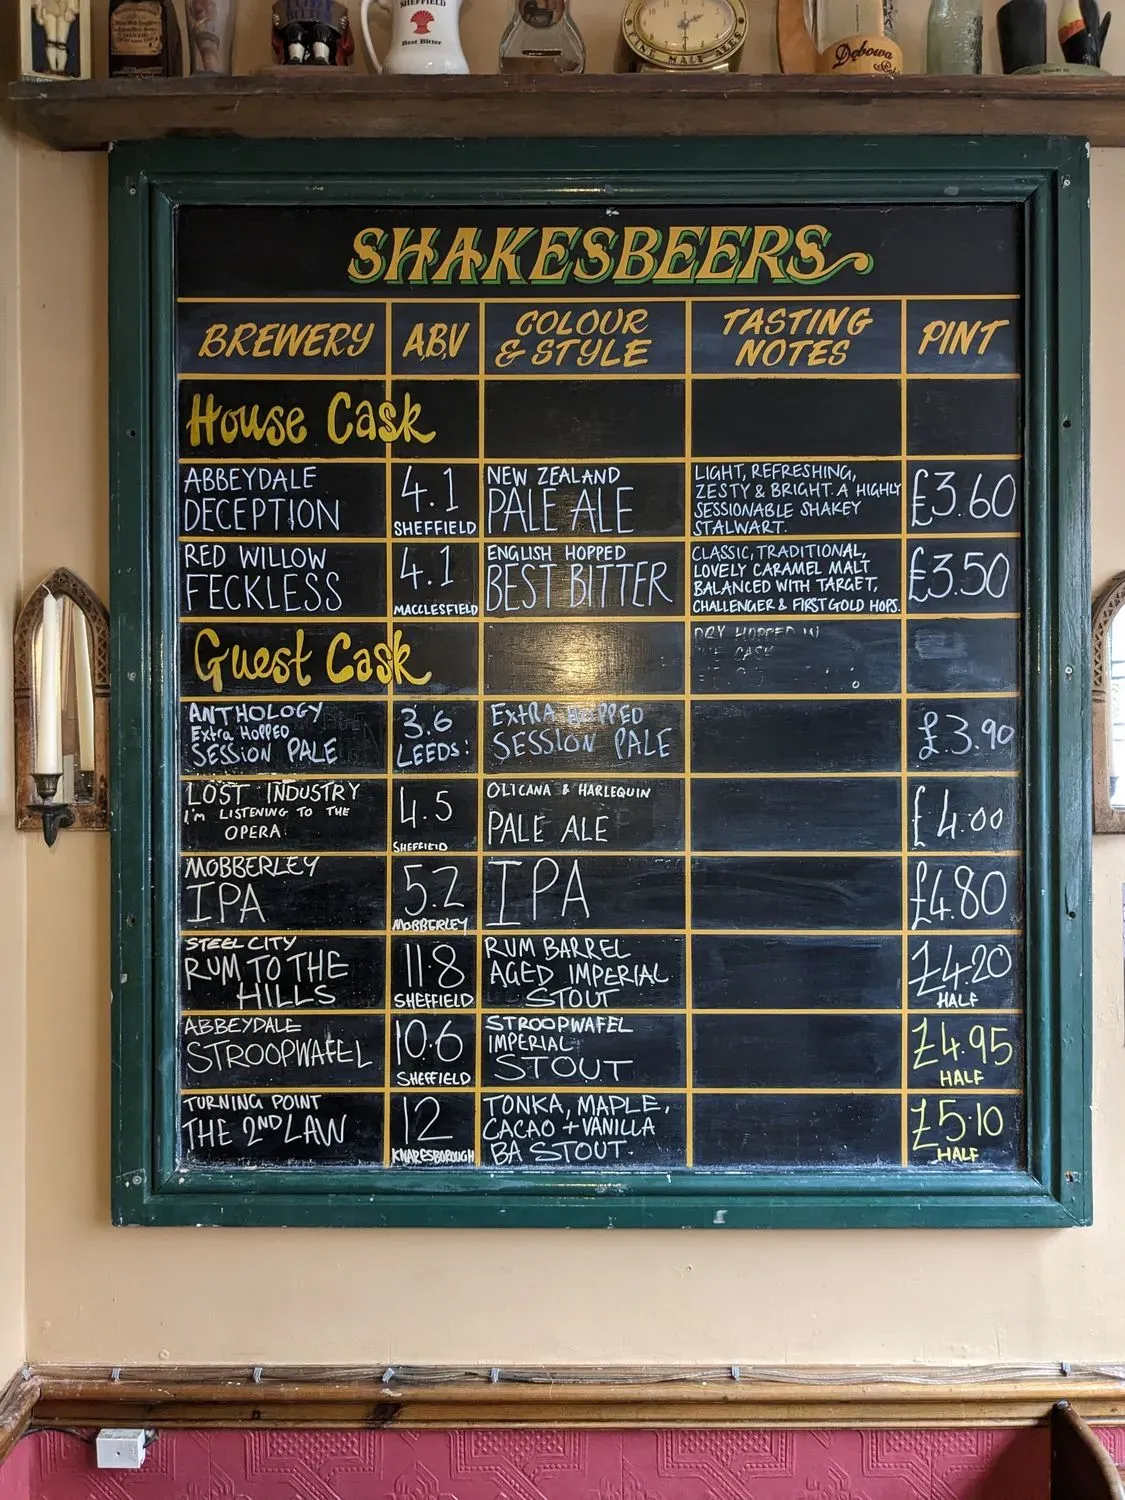 SHEFFIELD
Best Bitter
FINE MALT ALES
Dębowa
SHAKESBEERS
BREWERY
ABV
COLOUR
& STYLE
TASTING
NOTES
PINT
House Cask
ABBEYDALE
DECEPTION
4.1
SHEFFIELD
NEW ZEALAND
PALE ALE
LIGHT, REFRESHING,
ZESTY & BRIGHT. A HIGHLY
SESSIONABLE SHAKEY
STALWART.
£3.60
RED WILLOW
FECKLESS
4.1
MACCLESFIELD
ENGLISH HOPPED
BEST BITTER
CLASSIC, TRADITIONAL,
LOVELY CARAMEL MALT
BALANCED WITH TARGET,
CHALLENGER & FIRST GOLD HOPS.
£3.50
Guest Cask
DRY HOPPED IN
CASK
ANTHOLOGY
Extra HOPPED
SESSION PALE
3.6
LEEDS!
ExtRA HOPPED
SESSION PALE
£3.90
LOST INDUSTRY
I'm LISTENING TO THE
OPERA
4.5
SHEFFIELD
OLICANA & HARLEQUIN
PALE ALE
£4.00
MOBBERLEY
IPA
5.2
MOBBERLEY
IPA
£4.80
STEEL CITY
RUM TO THE
HILLS
11.8
SHEFFIELD
RUM BARREL
AGED IMPERIAL
STOUT
£4.20
HALF
ABBEYDALE
STROOPWAFEL
10.6
SHEFFIELD
STROOPWAFEL
IMPERIAL
STOUT
£4.95
HALF
TURNING POINT
THE 2ND LAW
12
KNARESBOROUGH
TONKA, MAPLE,
CACAO + VANILLA
BA STOUT.
£5.10
HALF